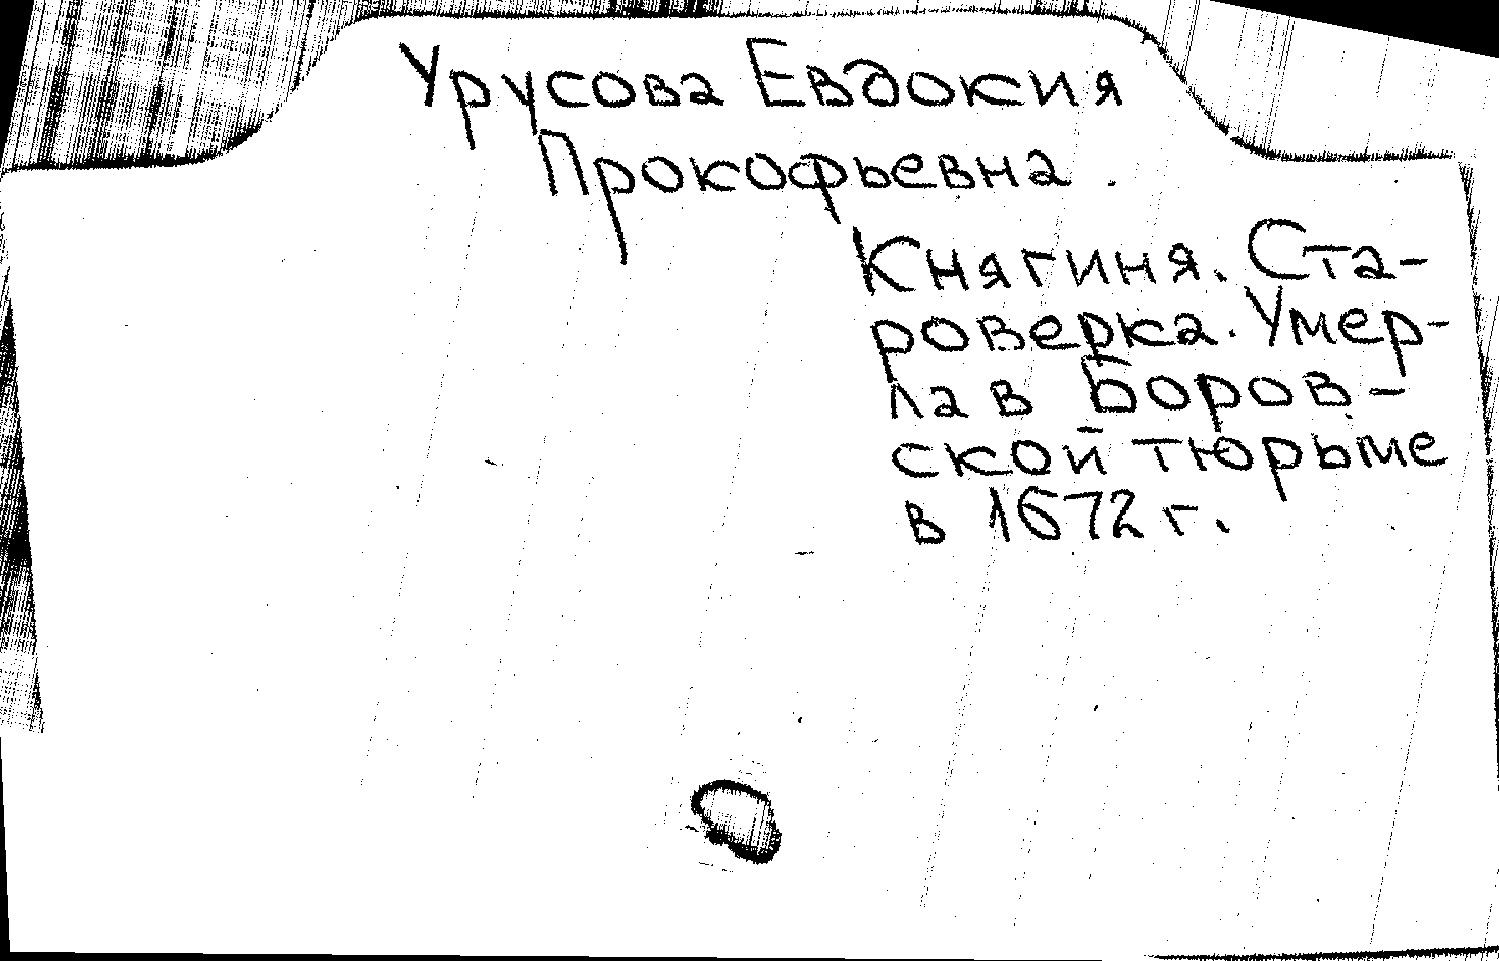 Урусова Евдокия
Прокофьевна.
Княгиня. Ста-
роверка. Умер-
ла в Боров-
ской тюрьме
в 1672 г.